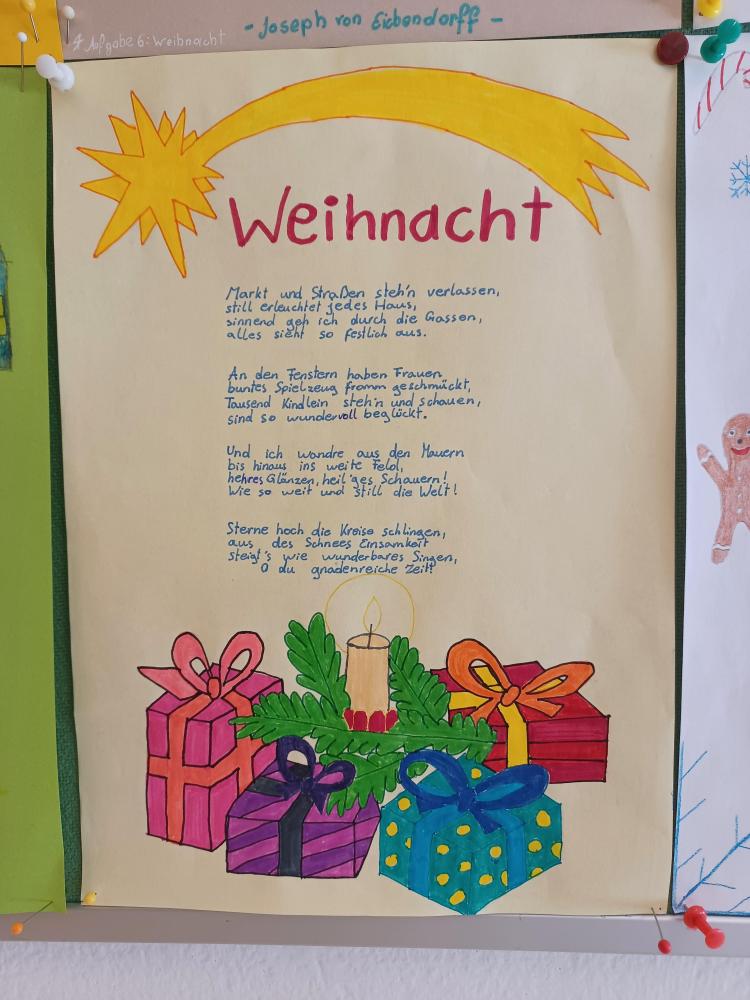 - Joseph von Eichendorff -
Aufgabe 6: Weihnacht
Weihnacht
Markt und Straßen steh'n verlassen,
still erleuchtet jedes Haus,
sinnend geh ich durch die Gassen,
alles sieht so festlich aus.
An den Fenstern haben Frauen
buntes Spielzeug fromm geschmückt,
Tausend Kindlein steh'n und schauen,
sind so wundervoll beglückt.
Und ich wandre aus den Mauern
bis hinaus ins weite Feld,
hehres Glänzen, heil'ges Schauern!
Wie so weit und still die Welt!
Sterne hoch die Kreise schlingen,
aus des Schnees Einsamkeit
steigt's wie wunderbares Singen,
O du gnadenreiche Zeit!